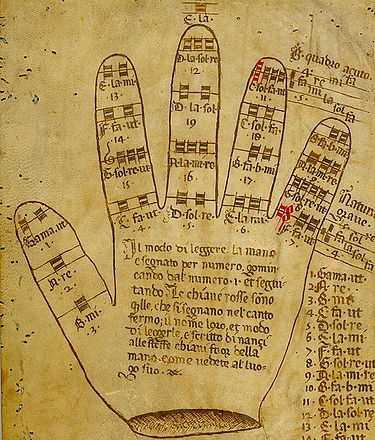 E . la .
D . la . sol . re
12 .
E . la . mi
. 13 .
D . la . sol
19
F . fa . ut
. 14 .
G . sol . re . ut
15
A . la . mi . re
16 .
C . fa . ut
. 4 .
D . sol . re
. 5 .
C . sol . fa . ut
. 11 .
C . sol . fa
18 .
B . fa . b . mi
. 17 .
E . la . mi
. 6 .
B . fa . b . mi
A . la . mi . re
G . sol . re . ut
F . fa . ut
. 7 .
B . quadro acuto .
Natura
grave .
Gama . ut .
. 1 .
A . re .
. 2 .
B . mi .
3 .
Il modo di leggere la mano
e segnato per numero, comin
cando dal numero . 1 . et segui
tando . Le chiave rosse sono
qlle, che si segnano nel canto
fermo; il nome loro, et modo
di leggerle, e scritto di nanci
alle stesse chiavi fuor della
mano, come vedete al luo-
go suo .
1 . Gama . ut .
2 . A . re .
3 . B . mi
4 . C . fa . ut
5 . D . sol . re .
6 . E . la . mi
7 . F . fa . ut
8 . G . sol . re . ut
9 . A . la . mi . re
10 . B . fa . b . mi
11 . C . sol . fa . ut
12 . D . la . sol . re
13 . E . la . mi